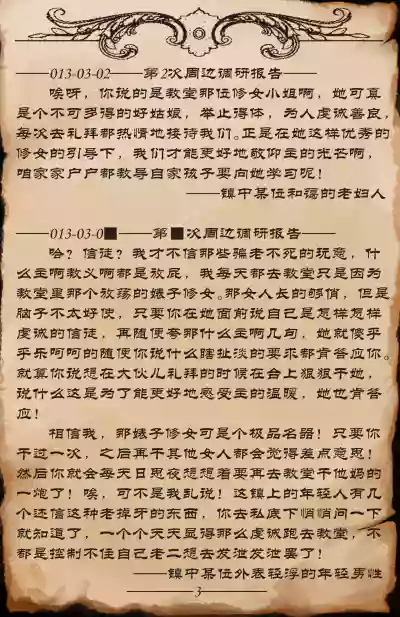 ——013-03-02——第2次周边调研报告——
唉呀，你说的是教堂那位修女小姐啊，她可真
是个不可多得的好姑娘，举止得体，为人虔诚善良，
每次去礼拜都热情地接待我们。正是在她这样优秀的
修女的引导下，我们才能更好地敬仰主的光芒啊，
咱家家户户都教导自家孩子要向她学习呢！
——镇中某位和蔼的老妇人
——013-03-0■——第■次周边调研报告——
哈？信徒？我才不信那些骗老不死的玩意，什
么主啊教义啊都是放屁，我每天都去教堂只是因为
教堂里那个放荡的婊子修女。那女人长的够俏，但是
脑子不太好使，只要你在她面前说自己是怎样怎样
虔诚的信徒，再随便夸那什么主啊几句，她就傻乎
乎乐呵呵的随便你说什么瞎扯淡的要求都肯答应你。
就算你说想在大伙儿礼拜的时候在台上狠狠干她，
说什么这是为了能更好地感受主的温暖，她也肯答
应！
相信我，那婊子修女可是个极品名器！只要你
干过一次，之后再干其他女人都会觉得差点意思！
然后你就会每天日思夜想想着要再去教堂干他妈的
一炮了！唉，可不是我乱说！这镇上的年轻人有几
个还信这种老掉牙的东西，你去私底下悄悄问一下
就知道了，一个个天天显得那么虔诚跑去教堂，不
都是控制不住自己老二想去发泄发泄罢了！
——镇中某位外表轻浮的年轻男性
3